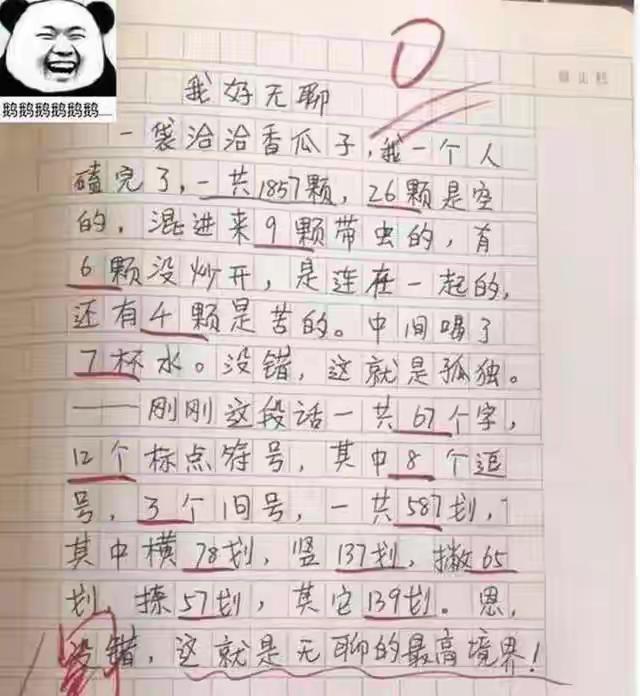 鹅鹅鹅鹅鹅鹅
0
我好无聊
一袋洽洽香瓜子,我一个人
嗑完了,一共1857颗,26颗是空
的,混进来9颗带虫的,有
6颗没炒开,是连在一起的,
还有4颗是苦的。中间喝了
7杯水。没错,这就是孤独。
——刚刚这段话一共67个字,
12个标点符号,其中8个逗
号,3个旧号,一共587划,
其中横78划,竖137划,撇65
划,捺57划,其它139划。恩,
没错,这就是无聊的最高境界!